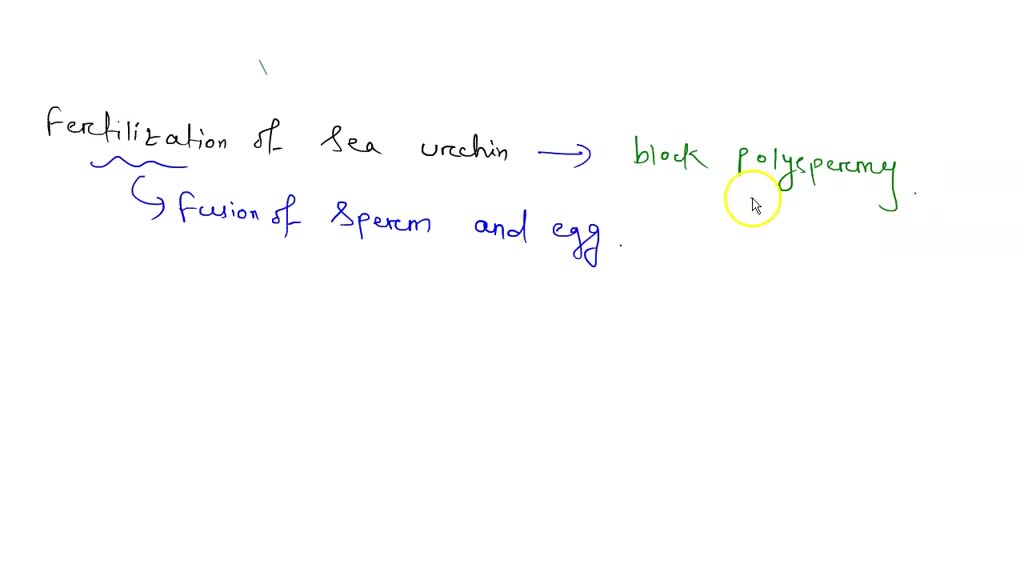 Fertilization of sea urchin → block polyspermy.
↳ fusion of sperm and egg.